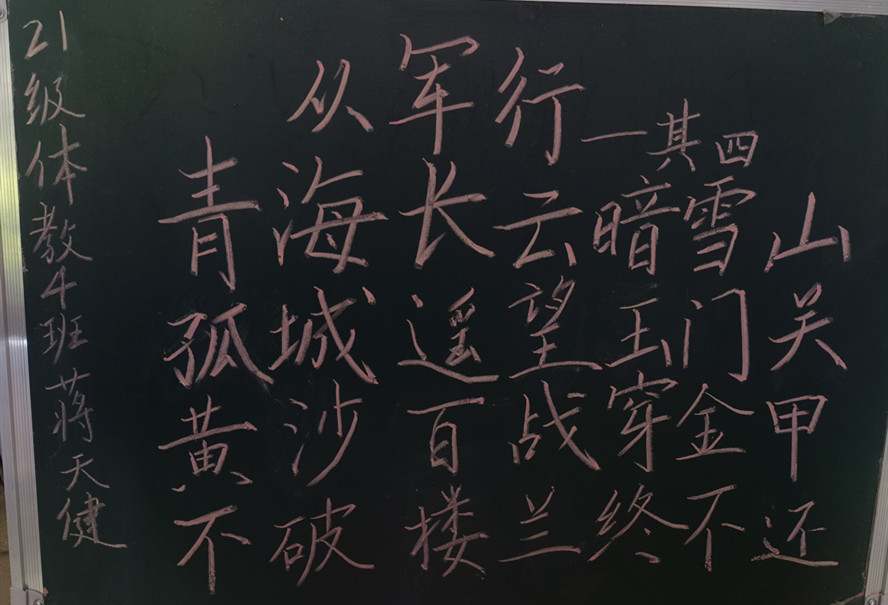 从军行一其四
青海长云暗雪山
孤城遥望玉门关
黄沙百战穿金甲
不破楼兰终不还
21级体教4班蒋天健